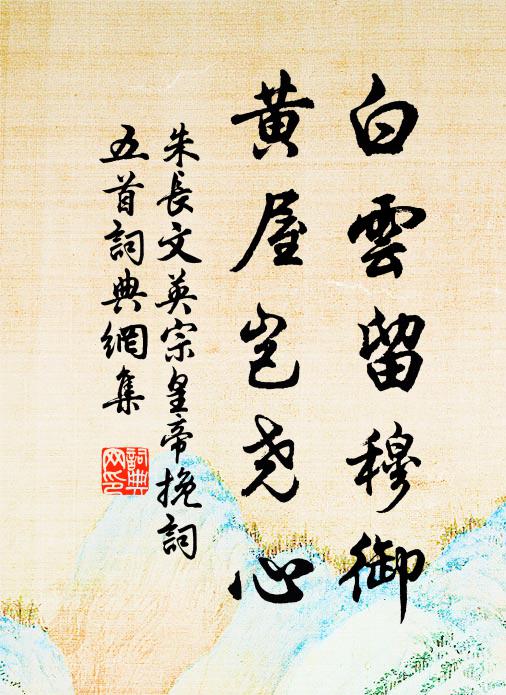 白雲留穆御
黄屋岂尧心
朱長文英宗皇帝挽詞
五首詞典網集
詞典网印